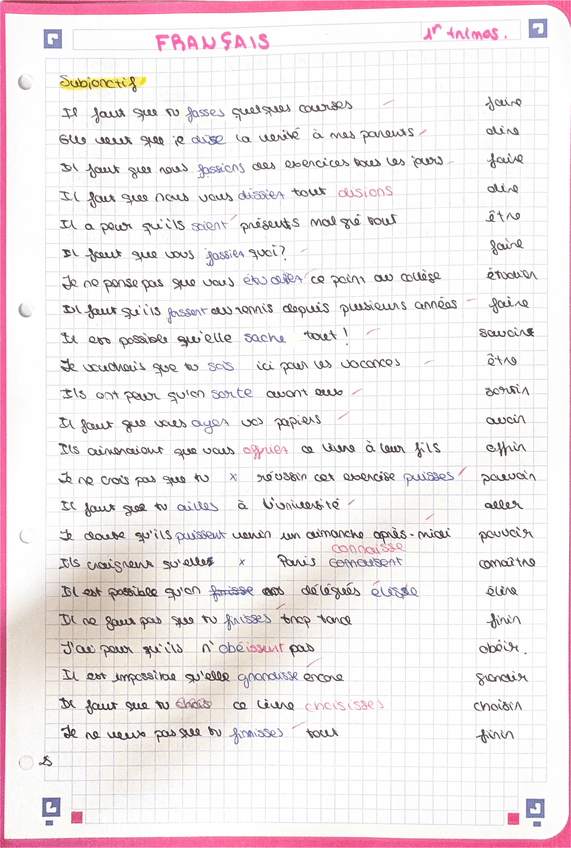 FRANÇAIS
1r trimes.
Subjonctif
Il faut que tu fasses quelques courses faire
Elle veut que je dise la verité à mes parents dire
Il faut que nous fassions des exercices tous les jours faire
Il faut que nous vous dissiez tout disions dire
Il a peur qu'ils soient présents malgré tout être
Il faut que vous fassiez quoi? faire
Je ne pense pas que vous étudiez ce point au collège étudier
Il faut qu'ils fassent du tennis depuis plusieurs années faire
Il est possible qu'elle sache tout! savoir
Je voudrais que tu sois ici pour les vacances être
Ils ont peur qu'on sorte avant eux sortir
Il faut que vous ayez vos papiers avoir
Ils aimeraient que vous offriez ce livre à leur fils offrir
Je ne crois pas que tu x réussir cet exercise puisses pouvoir
Il faut que tu ailles à l'université aller
Je doute qu'ils puissent venir un dimanche après-midi pouvoir
connaisse
Ils craignent qu'elle x Paris connaissent connaître
Il est possible qu'on finisse délégués élisse élire
Il ne faut pas que tu finisses trop tard finir
J'ai peur qu'ils n'obéissent pas obéir.
Il est impossible qu'elle grandisse encore grandir
Il faut que tu chois ce livre choisisses choisir
Je ne veux pas que tu finisses tout finir